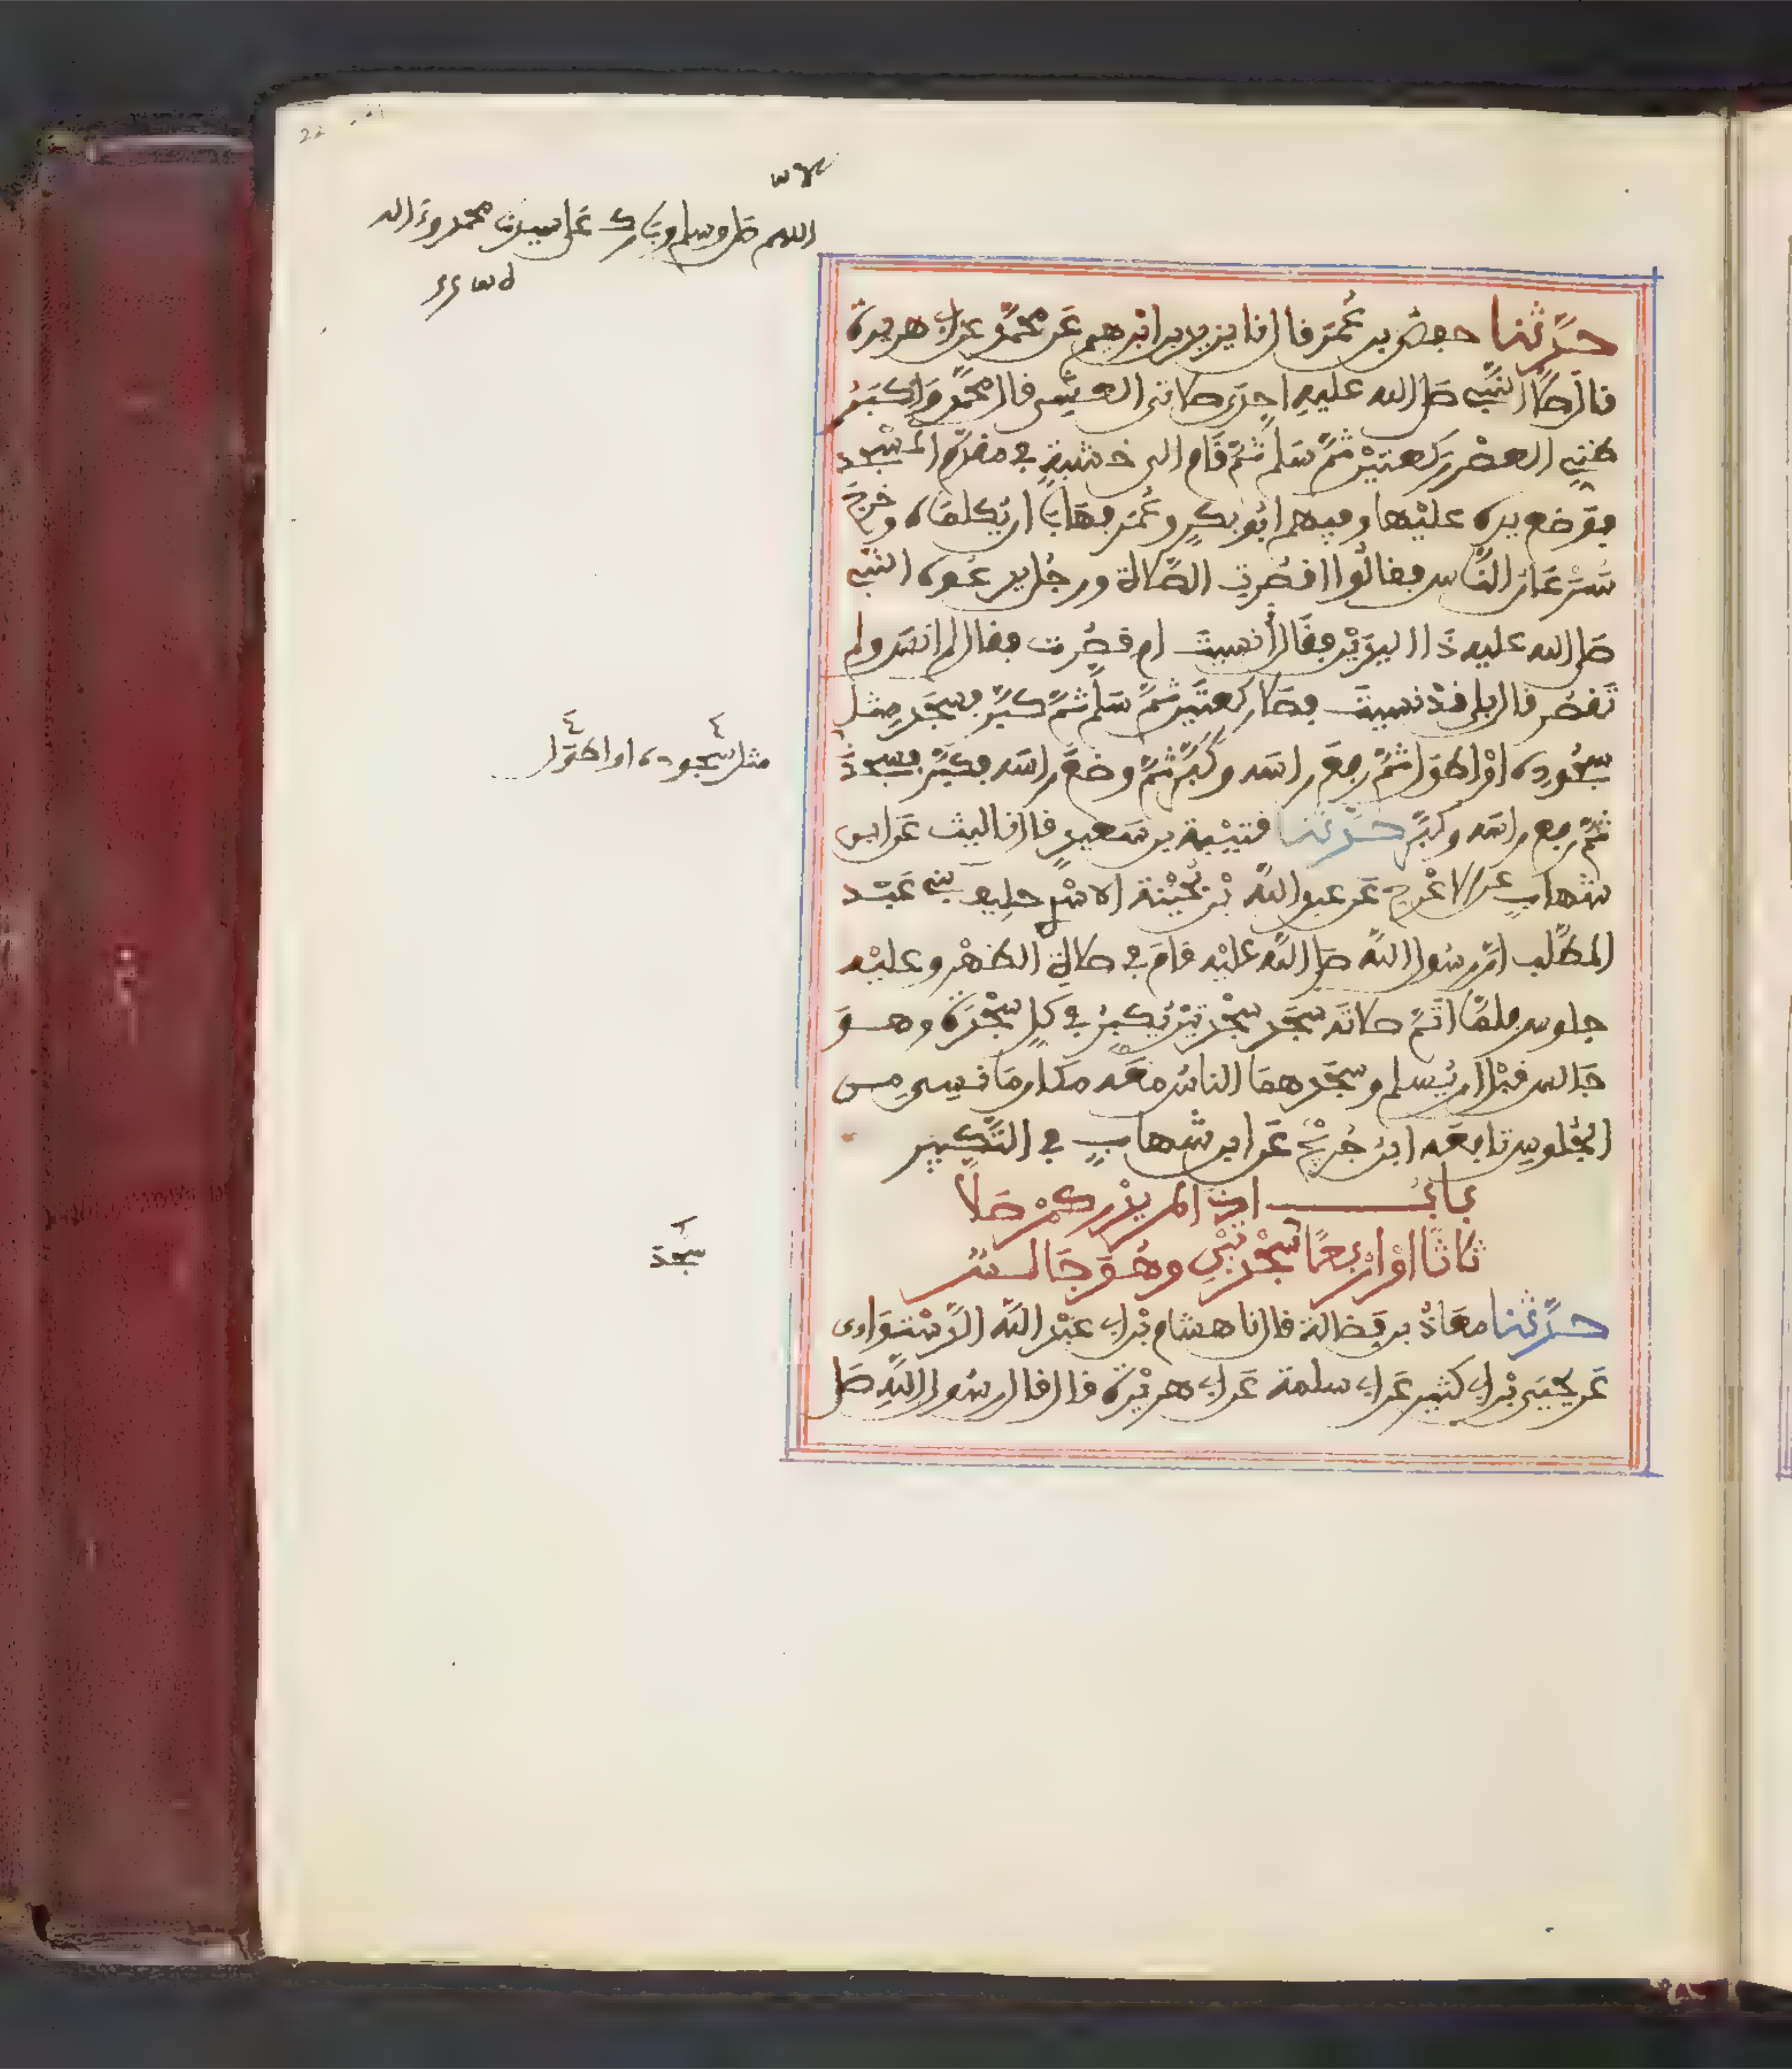 اللهم صل وسلم وبارك على سيدنا محمد وءاله
حدثنا حفص بن عمر قال نا يزيد بن ابرهيم عن محمد عن ابي هريرة
قال صلى النبي صلى الله عليه احدى صلاتي العشي قال محمد واكثر
ظني العصر ركعتين ثم سلم ثم قام الى خشبة في مقدم المسجد
فوضع يده عليها وفيهم ابو بكر وعمر فهابا ان يكلماه وخرج
سرعان الناس فقالوا اقصرت الصلاة ورجل يدعوه النبي
صلى الله عليه ذا اليدين فقال أنسيت ام قصرت فقال لم انس ولم
تقصر قال بلى قد نسيت فصلى ركعتين ثم سلم ثم كبر فسجد مثل
سجوده او اطول ثم رفع راسه وكبر ثم وضع راسه فكبر فسجد
مثل سجوده او اطول
ثم رفع راسه وكبر حدثنا قتيبة بن سعيد قال نا ليث عن ابن
شهاب عن الاعرج عن عبد الله بن بحينة الاسدي حليف بني عبد
المطلب ان رسول الله صلى الله عليه قام في صلاة الظهر وعليه
جلوس فلما اتم صلاته سجد سجدتين يكبر في كل سجدة وهو
جالس قبل ان يسلم وسجدهما الناس معه مكان ما نسي من
الجلوس تابعه ابن جريج عن ابن شهاب في التكبير
باب اذا لم يدر كم صلى
ثلاثا او اربعا سجدتين وهو جالس
سجد
حدثنا معاذ بن فضالة قال نا هشام بن ابي عبد الله الدستوائي
عن يحيى بن ابي كثير عن ابي سلمة عن ابي هريرة قال قال رسول الله صلى